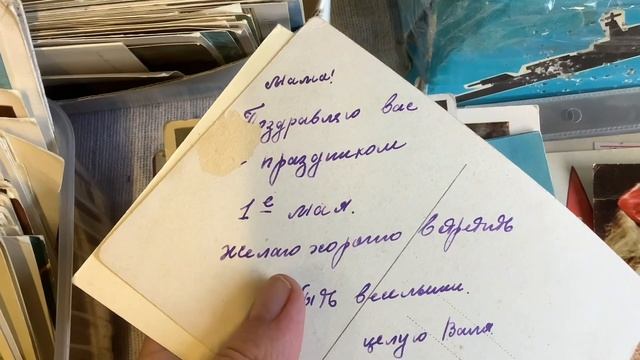 мама!
Поздравляю вас
с праздником
1е мая.
Желаю хорошо встретить
быть веселыми.
целую Валя